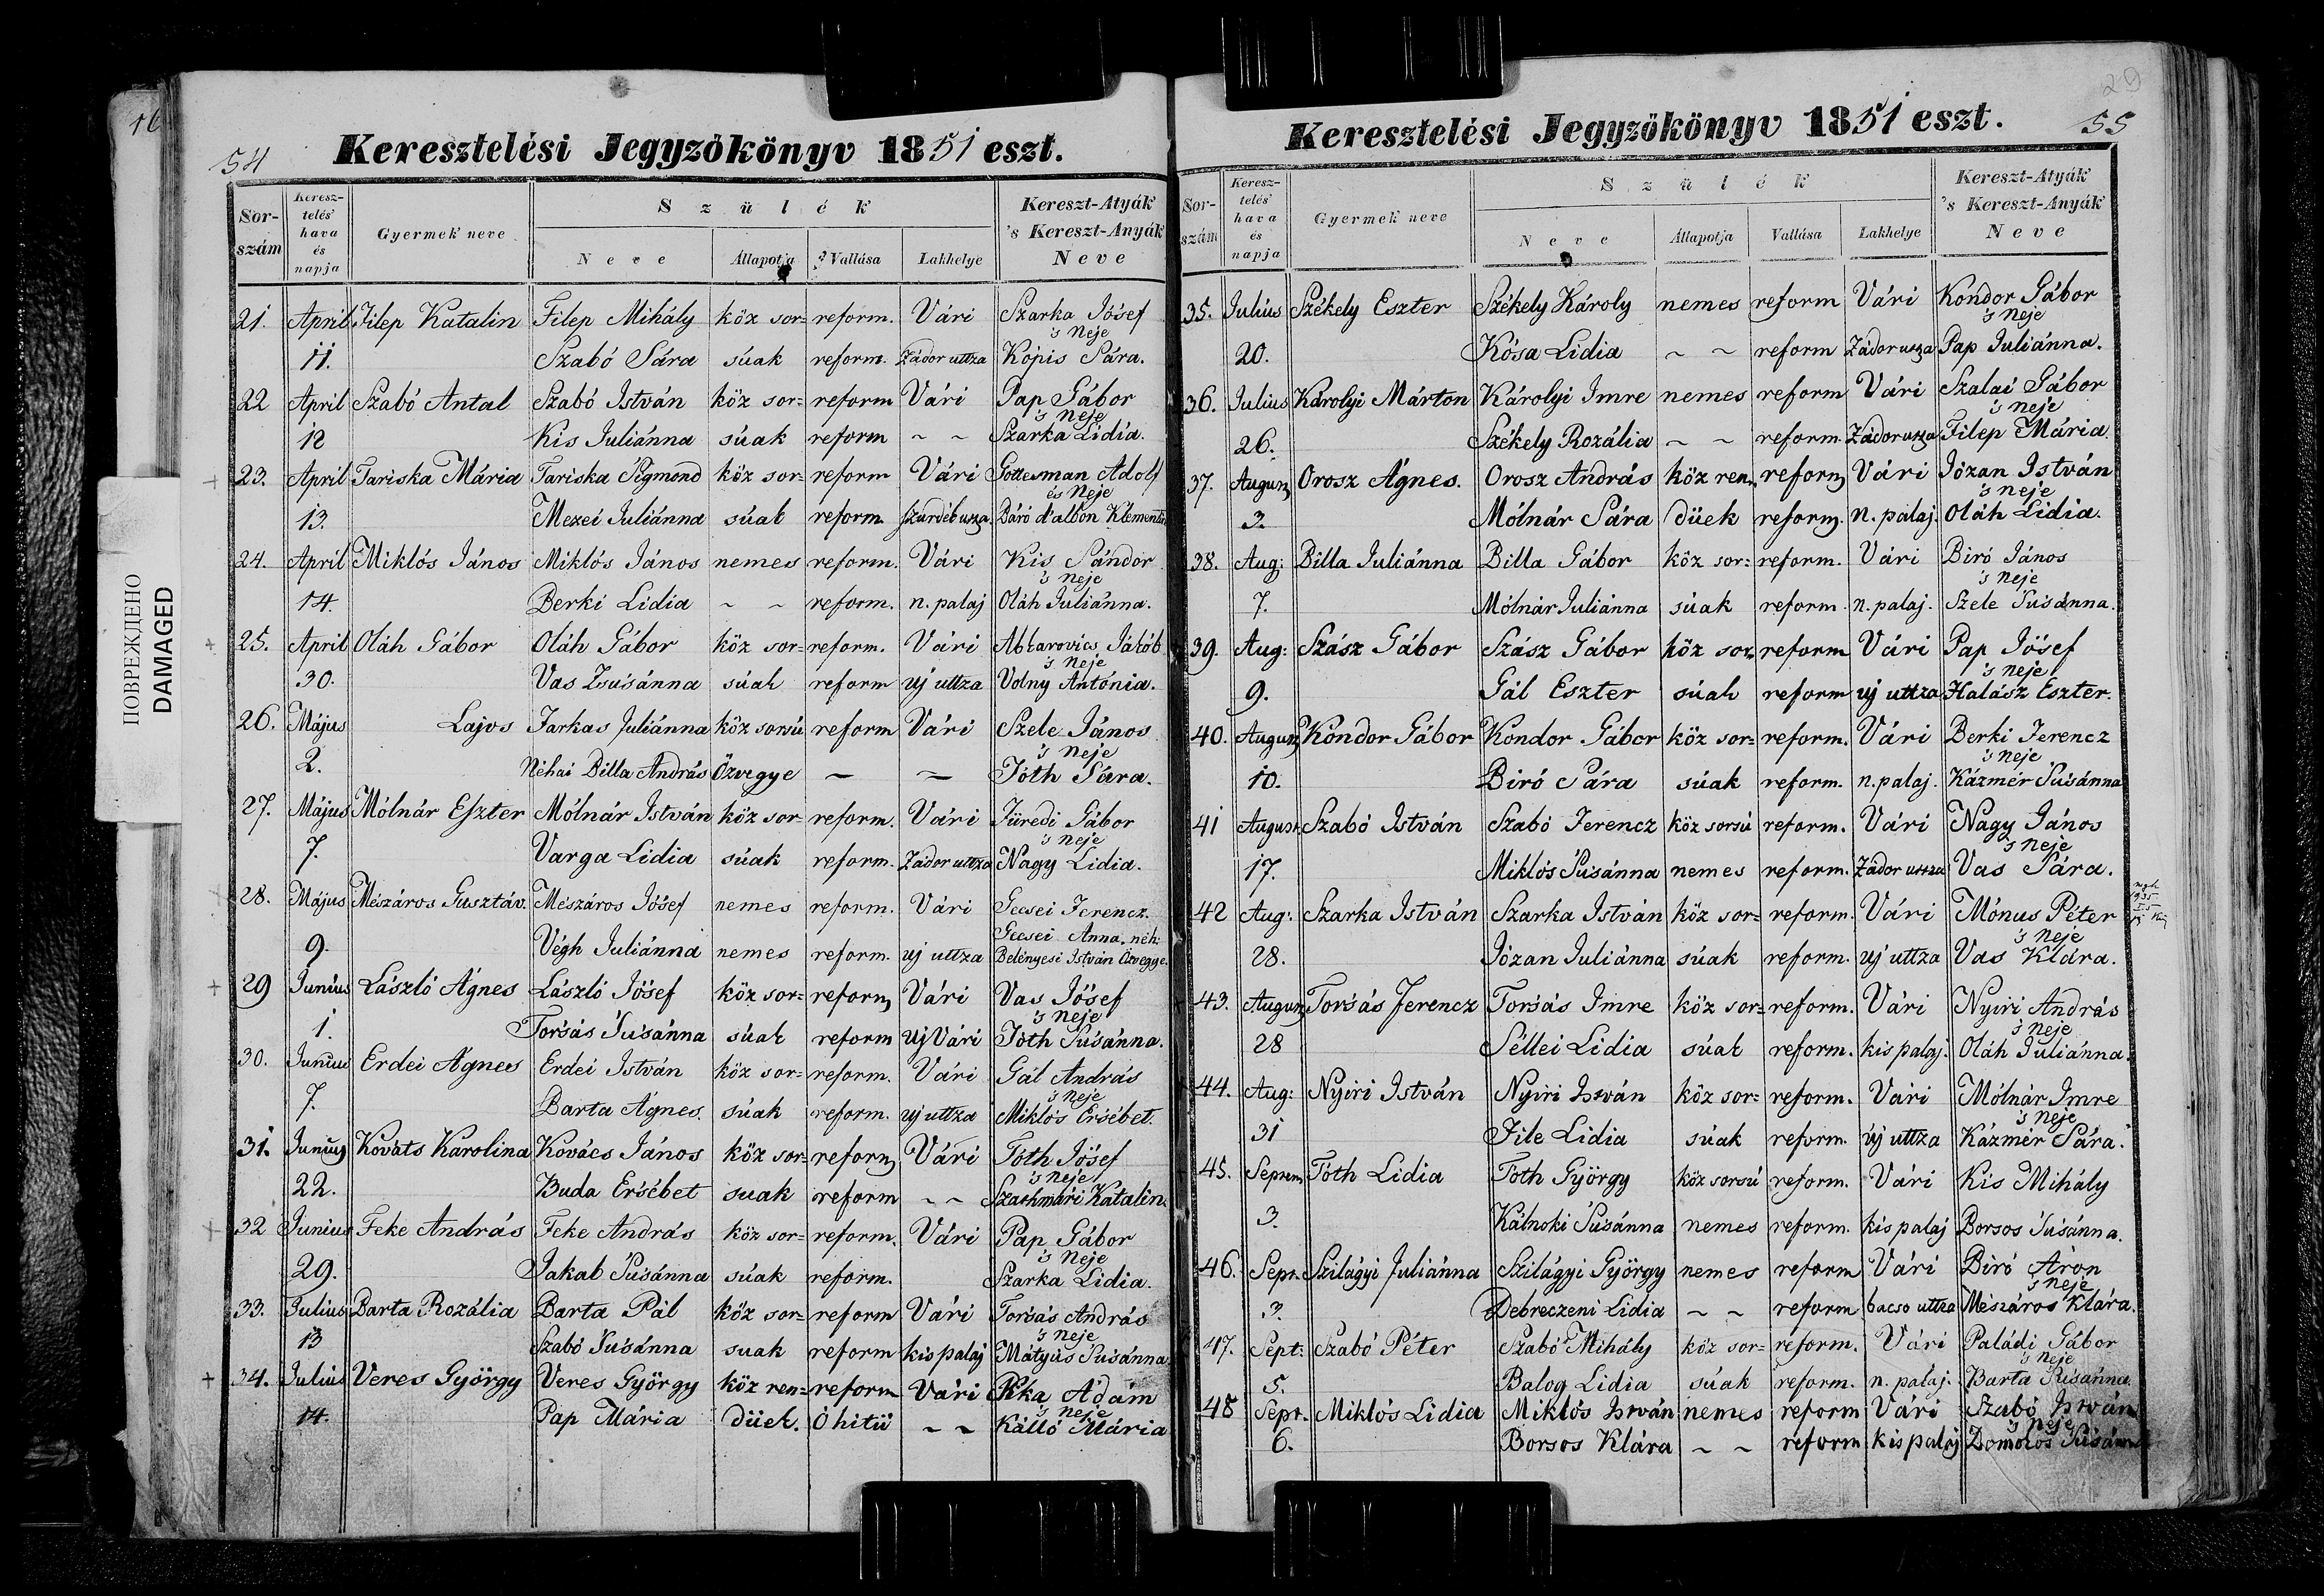 16
54
Keresztelési Jegyzökönyv 1851 eszt.
Sor-szám Keresz-telés' hava és napja Gyermek' neve Szülék Neve Állapotja Vallása Lakhelye Kereszt-Atyák 's Kereszt-Anyák Neve
21. April Filep Katalin Filep Mihály köz sor= reform. Vári Szarka Jósef
's Neje
11. Szabó Sára súak reform. Zádor uttza Kópis Sára.
22 April Szabó Antal Szabó István köz sor= reform Vári Pap Gábor
's Neje
12 Kis Juliánna súak reform ~ ~ Szarka Lidia.
23. April Tariska Mária Tariska Sigmond köz sor= reform Vári Gottesman Adolf
és Neje
13. Mezei Juliánna súak reform Báró d'albon
24. April Miklós János Miklós János nemes reform. Vári Kis Sándor
's Neje
14. Berki Lidia ~ ~ reform. n. palaj Oláh Juliánna.
25. April Oláh Gábor Oláh Gábor köz sor= reform. Vári Jákób
's Neje
30. Vas Zsusánna súak reform uj uttza Volny Antónia.
26. Május Lajos Farkas Juliánna köz sorsú reform Vári Szele János
's Neje
2. Néhai Billa András Özvegye — — Tóth Sára.
27. Május Mólnár Eszter Mólnár István köz sor= reform. Vári Füredi Gábor
's neje
7. Varga Lidia súak reform. Zádor uttza Nagy Lidia.
28. Május Mészáros Gusztáv. Mészáros Jósef nemes reform. Vári Gecsei Ferencz.
Gecsei Anna. néh:
9. Végh Juliánna nemes reform. uj uttza Belényesi István Özvegye.
29 Junius László Ágnes László Jósef köz sor= reform Vári Vas Jósef
's neje
1. Torsás Susánna súak reform Uj Vári Tóth Susánna.
30. Junius Erdei Ágnes Erdei István köz sor= reform. Vári Gál András
's neje
7. Barta Ágnes. súak reform. uj uttza Miklós Ersébet.
31. Junius Kováts Karolina Kovács János köz sor= reform Vári Tóth Jósef
's neje
22. Buda Ersébet suak reform ~ ~ Szathmári Katalin.
32 Junius Feke András Feke András köz sor= reform. Vári Pap Gábor
's Neje
29. Jakab Susánna súak reform. Szarka Lidia.
33. Julius Barta Rozália Barta Pál köz sor= reform Vári Torsás András
's neje
13 Szabó Susánna suak reform kis palaj Mátyús Susánna
34. Julius Veres György Veres György köz ren= reform Vári Ádám
's neje
14. Pap Mária düek. Ó hitü ~ ~ Kálló Mária
29
55
Keresztelési Jegyzökönyv 1851 eszt.
Sor-szám Keresz-telés' hava és napja Gyermek neve Szülék Neve Állapotja Vallása Lakhelye Kereszt-Atyák' 's Kereszt-Anyák' Neve
35. Julius Székely Eszter Székely Károly nemes reform Vári Kondor Gábor
's neje
20. Kósa Lidia ~ ~ reform Zádor uttza Pap Juliánna.
36. Julius Károlyi Márton Károlyi Imre nemes reform Vári Szalai Gábor
's neje
26. Székely Rozália ~ ~ reform. Zádor uttza Filep Mária.
37. August Orosz Ágnes. Orosz András köz ren= reform Vári Józan István
's neje
3. Mólnár Sára düek reform. n. palaj. Oláh Lidia.
38. Aug: Billa Juliánna Billa Gábor köz sor= reform. Vári Biró János
's neje
7. Mólnár Juliánna súak reform. n. palaj. Szele Susánna.
39. Aug: Szász Gábor Szász Gábor köz sor= reform Vári Pap Jósef
's neje
9. Gál Eszter súak reform uj uttza Halász Eszter.
40. August Kondor Gábor Kondor Gábor köz sor= reform. Vári Berki Ferencz
's neje
10. Biró Sára súak reform. n. palaj. Kázmér Susánna
41 August Szabó István Szabó Ferencz köz sorsú reform. Vári Nagy János
's neje
17. Miklós Susánna nemes reform. Zádor uttza Vas Sára.
42 Aug: Szarka István Szarka István köz sor= reform. Vári Mónus Péter
's neje
28. Józan Juliánna súak reform. uj uttza Vas Klára.
43. August Torsás Ferencz Torsás Imre köz sor= reform. Vári Nyiri András
's neje
28 Séllei Lidia súak reform. kis palaj. Oláh Juliánna.
44. Aug: Nyiri István Nyiri István köz sor= reform. Vári Mólnár Imre
's neje
31 File Lidia súak reform. új uttza Kázmér Sára.
45. Septem Tóth Lidia Tóth György köz sorsú reform. Vári Kis Mihály
3. Kálnoki Susánna nemes reform. kis palaj Borsos Susánna.
46. Sept. Szilágyi Juliánna Szilágyi György nemes reform Vári Biró Áron
's neje
3. Debreczeni Lidia ~ ~ reform bacso uttza Mészáros Klára.
47. Sept: Szabó Péter Szabó Mihály köz sor= reform. Vári Paládi Gábor
's neje
5. Balog Lidia súak reform. n. palaj. Barta Susánna.
48 Sept. Miklós Lidia Miklós István nemes reform Vári Szabó István
's neje
6. Borsos Klára ~ ~ reform kis palaj Domokos Susánna
ПОВРЕЖДЕНО
DAMAGED